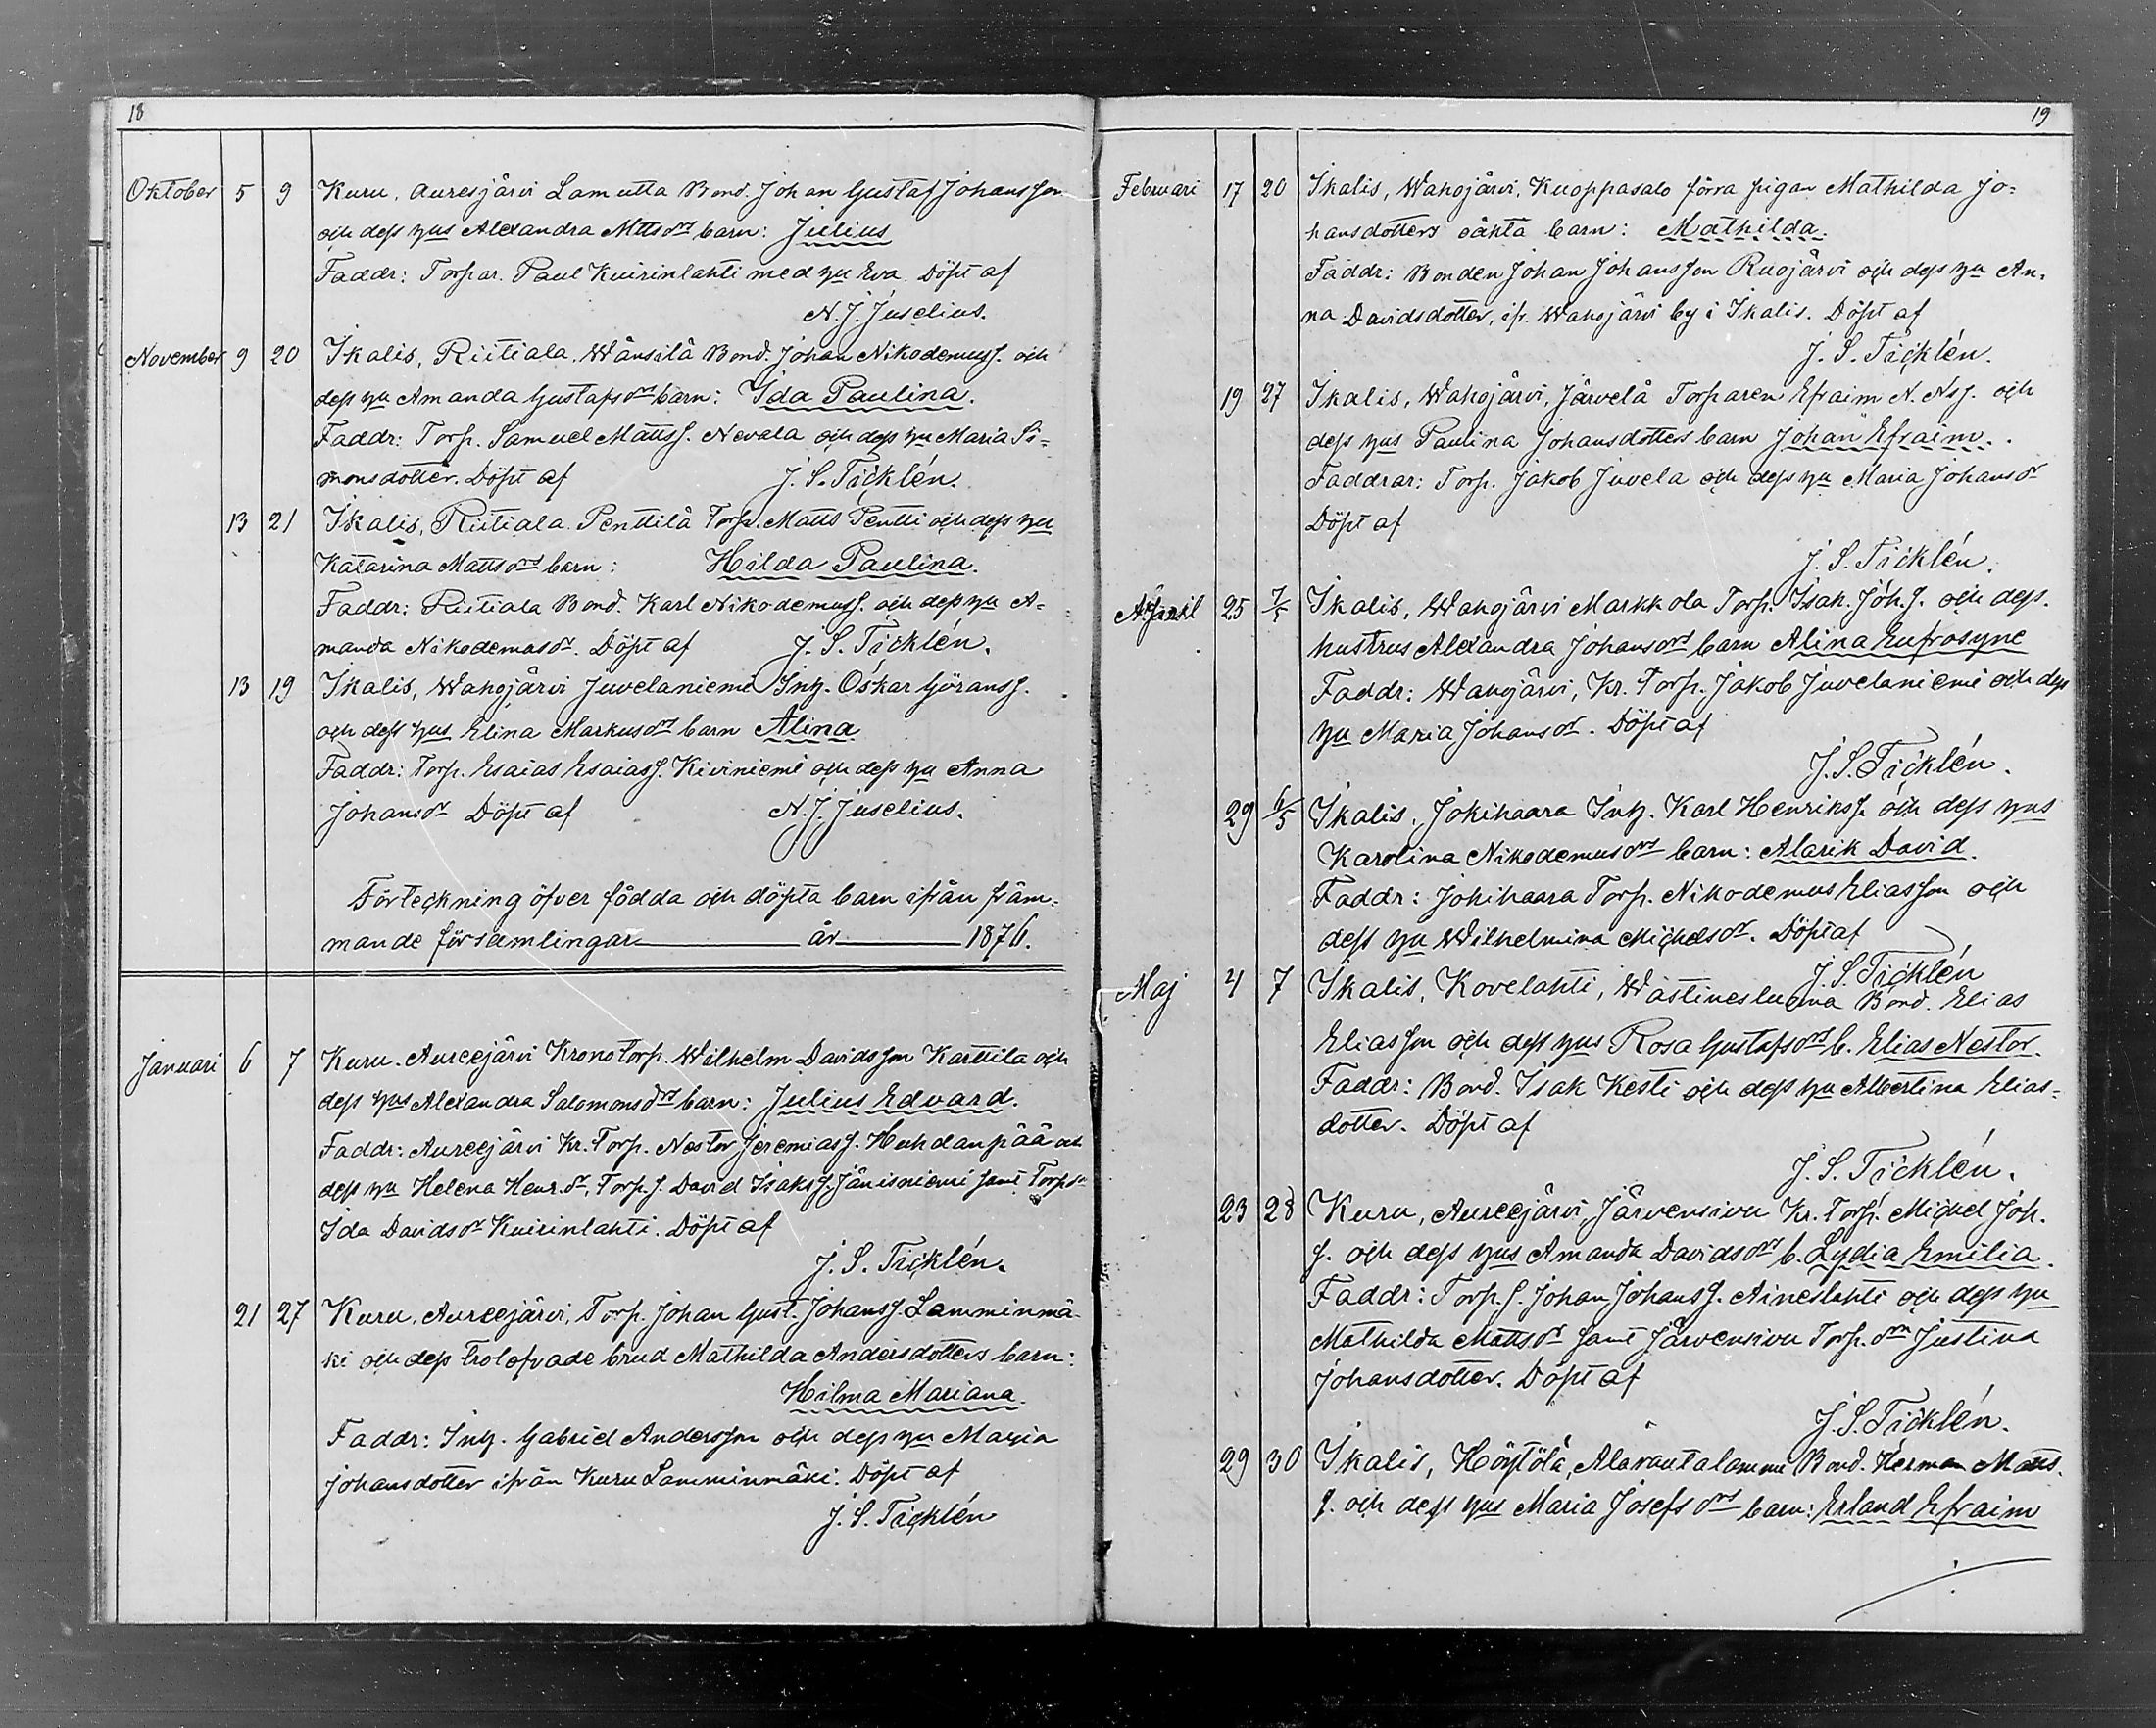 18
Oktober 5 9 Kuru, Auresjärvi Lamutta Bond. Johan Gustaf Johansson
och dess hus Alexandra Mttsdrs barn: Julius
Faddr: Torpar. Paul Kuirinlahti med hu Eva. Döpt af
N. J. Juselius.
November 9 20 Ikalis, Riitiala, Wänsilä Bond. Johan Nikodemuss. och
dess hu Amanda Gustafsdrs barn: Ida Paulina.
Faddr: Torp. Samuel Mattss. Nevala och dess hu Maria Si=
monsdotter. Döpt af J. S. Ticklén.
13 21 Ikalis, Riitiala Penttilä Torp. Matts Pentti och dess hu
Katarina Mattsdrs barn: Hilda Paulina.
Faddr: Riitiala Bond. Karl Nikodemuss. och dess hu A=
manda Nikodemusdr. Döpt af J. S. Ticklén.
13 19 Ikalis, Wahojärvi Juvelaniemi Inh. Oskar Göranss.
och dess hus Elina Markusdrs barn Alina
Faddr: Torp. Esaias Esaiass. Kiviniemi och dess hu Anna
Johansdr Döpt af N. J. Juselius.
Förteckning öfver födda och döpta barn ifrån främ=
mande församlingar år 1876.
Januari 6 7 Kuru. Aureejärvi Kronotorp. Wilhelm Davidsson Karttila och
dess hus Alexandra Salomonsdrs barn: Julius Edvard.
Faddr: Aureejärvi Kr. Torp. Nestor Jeremiass. Huhdanpää och
dess hu Helena Henr.dr, Torp.s. David Isakss. Jänisniemi samt Torpdr
Ida Davidsdr Kuirinlahti. Döpt af
J. S. Ticklén.
21 27 Kuru, Aureejärvi, Torp. Johan Gust. Johanss. Lamminmä-
ki och dess trolofvade brud Mathilda Andersdotters barn:
Hilma Mariana.
Faddr: Inh. Gabriel Andersson och dess hu Maria
Johansdotter ifrån Kuru Lamminmäki. Döpt af
J. S. Ticklén
19
Februari 17 20 Ikalis, Wahojärvi, Kuoppasalo förra pigan Mathilda Jo=
hansdotters oäkta barn: Mathilda.
Faddr: Bonden Johan Johansson Ruojärvi och dess hu An=
na Davidsdotter, ifr. Wahojärvi by i Ikalis. Döpt af
J. S. Ticklén.
19 27 Ikalis, Wahojärvi, Järvelä Torparen Efraim N. Nss. och
dess hus Paulina Johansdotters barn Johan Efraim.
Faddrar: Torp. Jakob Juvela och dess hu Maria Johansdr
Döpt af
J. S. Ticklén.
April 25 7/5 Ikalis, Wahojärvi Markkola Torp. Isak. Joh.s. och dess.
hustrus Alexandra Johansdrs barn Alina Eufrosyne
Faddr: Wahojärvi, Kr. Torp. Jakob Juvelaniemi och dess
hu Maria Johansdr. Döpt af
J. S. Ticklén.
29 6/5 Ikalis, Jokihaara Inh. Karl Henrikss. och dess hus
Karolina Nikodemusdrs barn: Alarik David.
Faddr: Jokihaara Torp. Nikodemus Eliasson och
dess hu Wilhelmina Michelsdr. Döpt af
J. S. Ticklén
Maj 4 7 Ikalis, Kovelahti, Wästinesluoma Bond. Elias
Eliasson och dess hus Rosa Gustafsdrs b. Elias Nestor.
Faddr: Bond. Isak Kesti och dess hu Albertina Elias=
dotter. Döpt af
J. S. Ticklén.
23 28 Kuru, Aureejärvi, Järvensivu Kr. Torp. Michel Joh.
s. och dess hus Amanda Davidsdrs b. Lydia Emilia.
Faddr: Torp. s. Johan Johanss. Aineslahti och dess hu
Mathilda Mattsdr samt Järvensivu Torp. drn Justina
Johansdotter. Döpt af
J. S. Ticklén.
29 30 Ikalis, Höytölä, Alarautalammi Bond. Herman Matts.
s. och dess hus Maria Josefsdrs barn: Erland Efraim